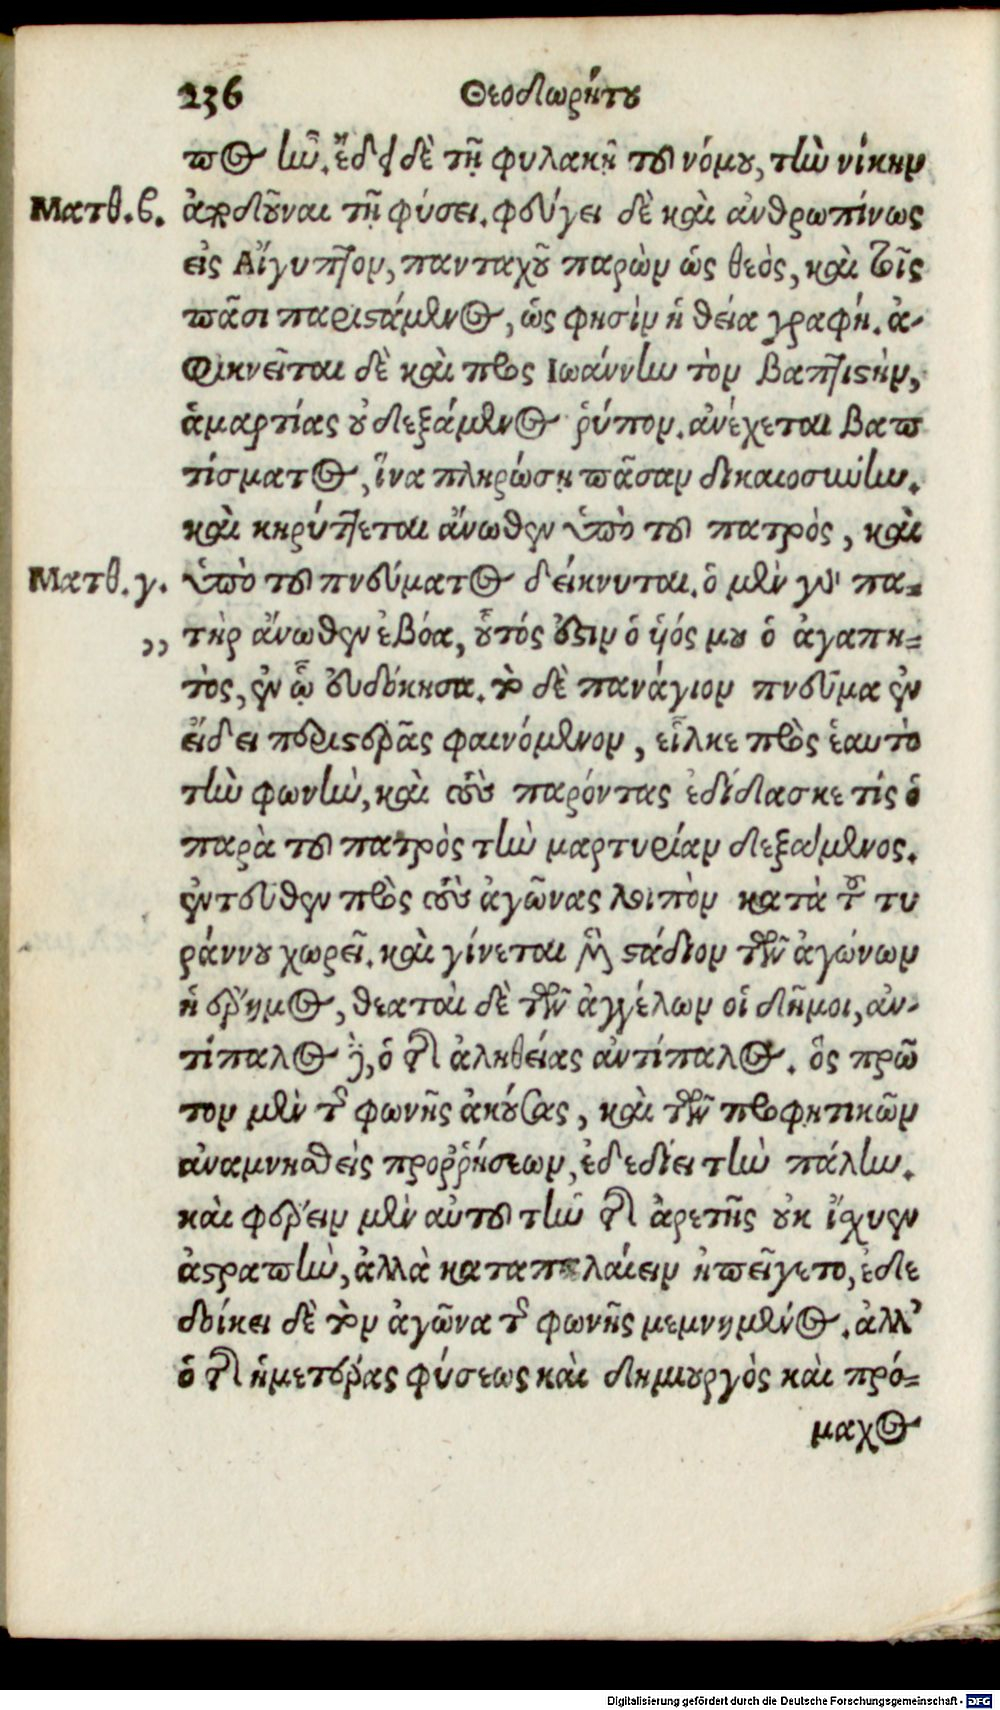 236 Θεοδωρήτου
πος ἦν. ἔδει δὲ τῇ φυλακῇ τοῦ νόμου, τὴν νίκην
Ματθ. β. ἀποδοῦναι τῇ φύσει. φεύγει δὲ καὶ ἀνθρωπίνως
εἰς Αἴγυπτον, πανταχοῦ παρὼν ὡς θεὸς, καὶ τοῖς
πᾶσι παριστάμενος, ὥς φησὶν ἡ θεία γραφή. ἀ-
φικνεῖται δὲ καὶ πρὸς Ιωάννην τὸν βαπτιστὴν,
ἁμαρτίας οὐ δεξάμενος ῥύπον. ἀνέχεται βαπ
τίσματος, ἵνα πληρώσῃ πᾶσαν δικαιοσύνην.
καὶ κηρύττεται ἄνωθεν ὑπὸ τοῦ πατρὸς, καὶ
Ματθ. γ. ὑπὸ τοῦ πνεύματος δείκνυται. ὁ μὲν γὰρ πα-
,, τὴρ ἄνωθεν ἐβόα, οὗτός ἐστιν ὁ ὑιός μου ὁ ἀγαπη-
τὸς, ἐν ᾧ εὐδόκησα. τὸ δὲ πανάγιον πνεῦμα ἐν
εἴδει περιστερᾶς φαινόμενον, εἷλκε πρὸς ἑαυτὸ
τὴν φωνὴν, καὶ τοὺς παρόντας ἐδίδασκε τίς ὁ
παρὰ τοῦ πατρὸς τὴν μαρτυρίαν δεξάμενος.
ἐντεῦθεν πρὸς τοὺς ἀγῶνας λοιπὸν κατὰ τοῦ τυ
ράννου χωρεῖ. καὶ γίνεται μὲν στάδιον τῶν ἀγώνων
ἡ ἔρημος, θεαταὶ δὲ τῶν ἀγγέλων οἱ δῆμοι, ἀν-
τίπαλος δὲ, ὁ τῆς ἀληθείας ἀντίπαλος. ὃς πρῶ
τον μὲν τῆς φωνῆς ἀκούσας, καὶ τῶν προφητικῶν
ἀναμνησθεὶς προῤῥήσεων, ἐδεδίει τὴν πάλην.
καὶ φέρειν μὲν αὐτοῦ τὴν τῆς ἀρετῆς οὐκ ἴσχυεν
ἀστραπὴν, ἀλλὰ καταπαλαίειν ἠπείγετο, ἐδε
δοίκει δὲ τὸν ἀγῶνα τῆς φωνῆς μεμνημένος. ἀλλ’
ὁ τῆς ἡμετέρας φύσεως καὶ δημιουργὸς καὶ πρό-
μαχος
Digitalisierung gefördert durch die Deutsche Forschungsgemeinschaft - DFG